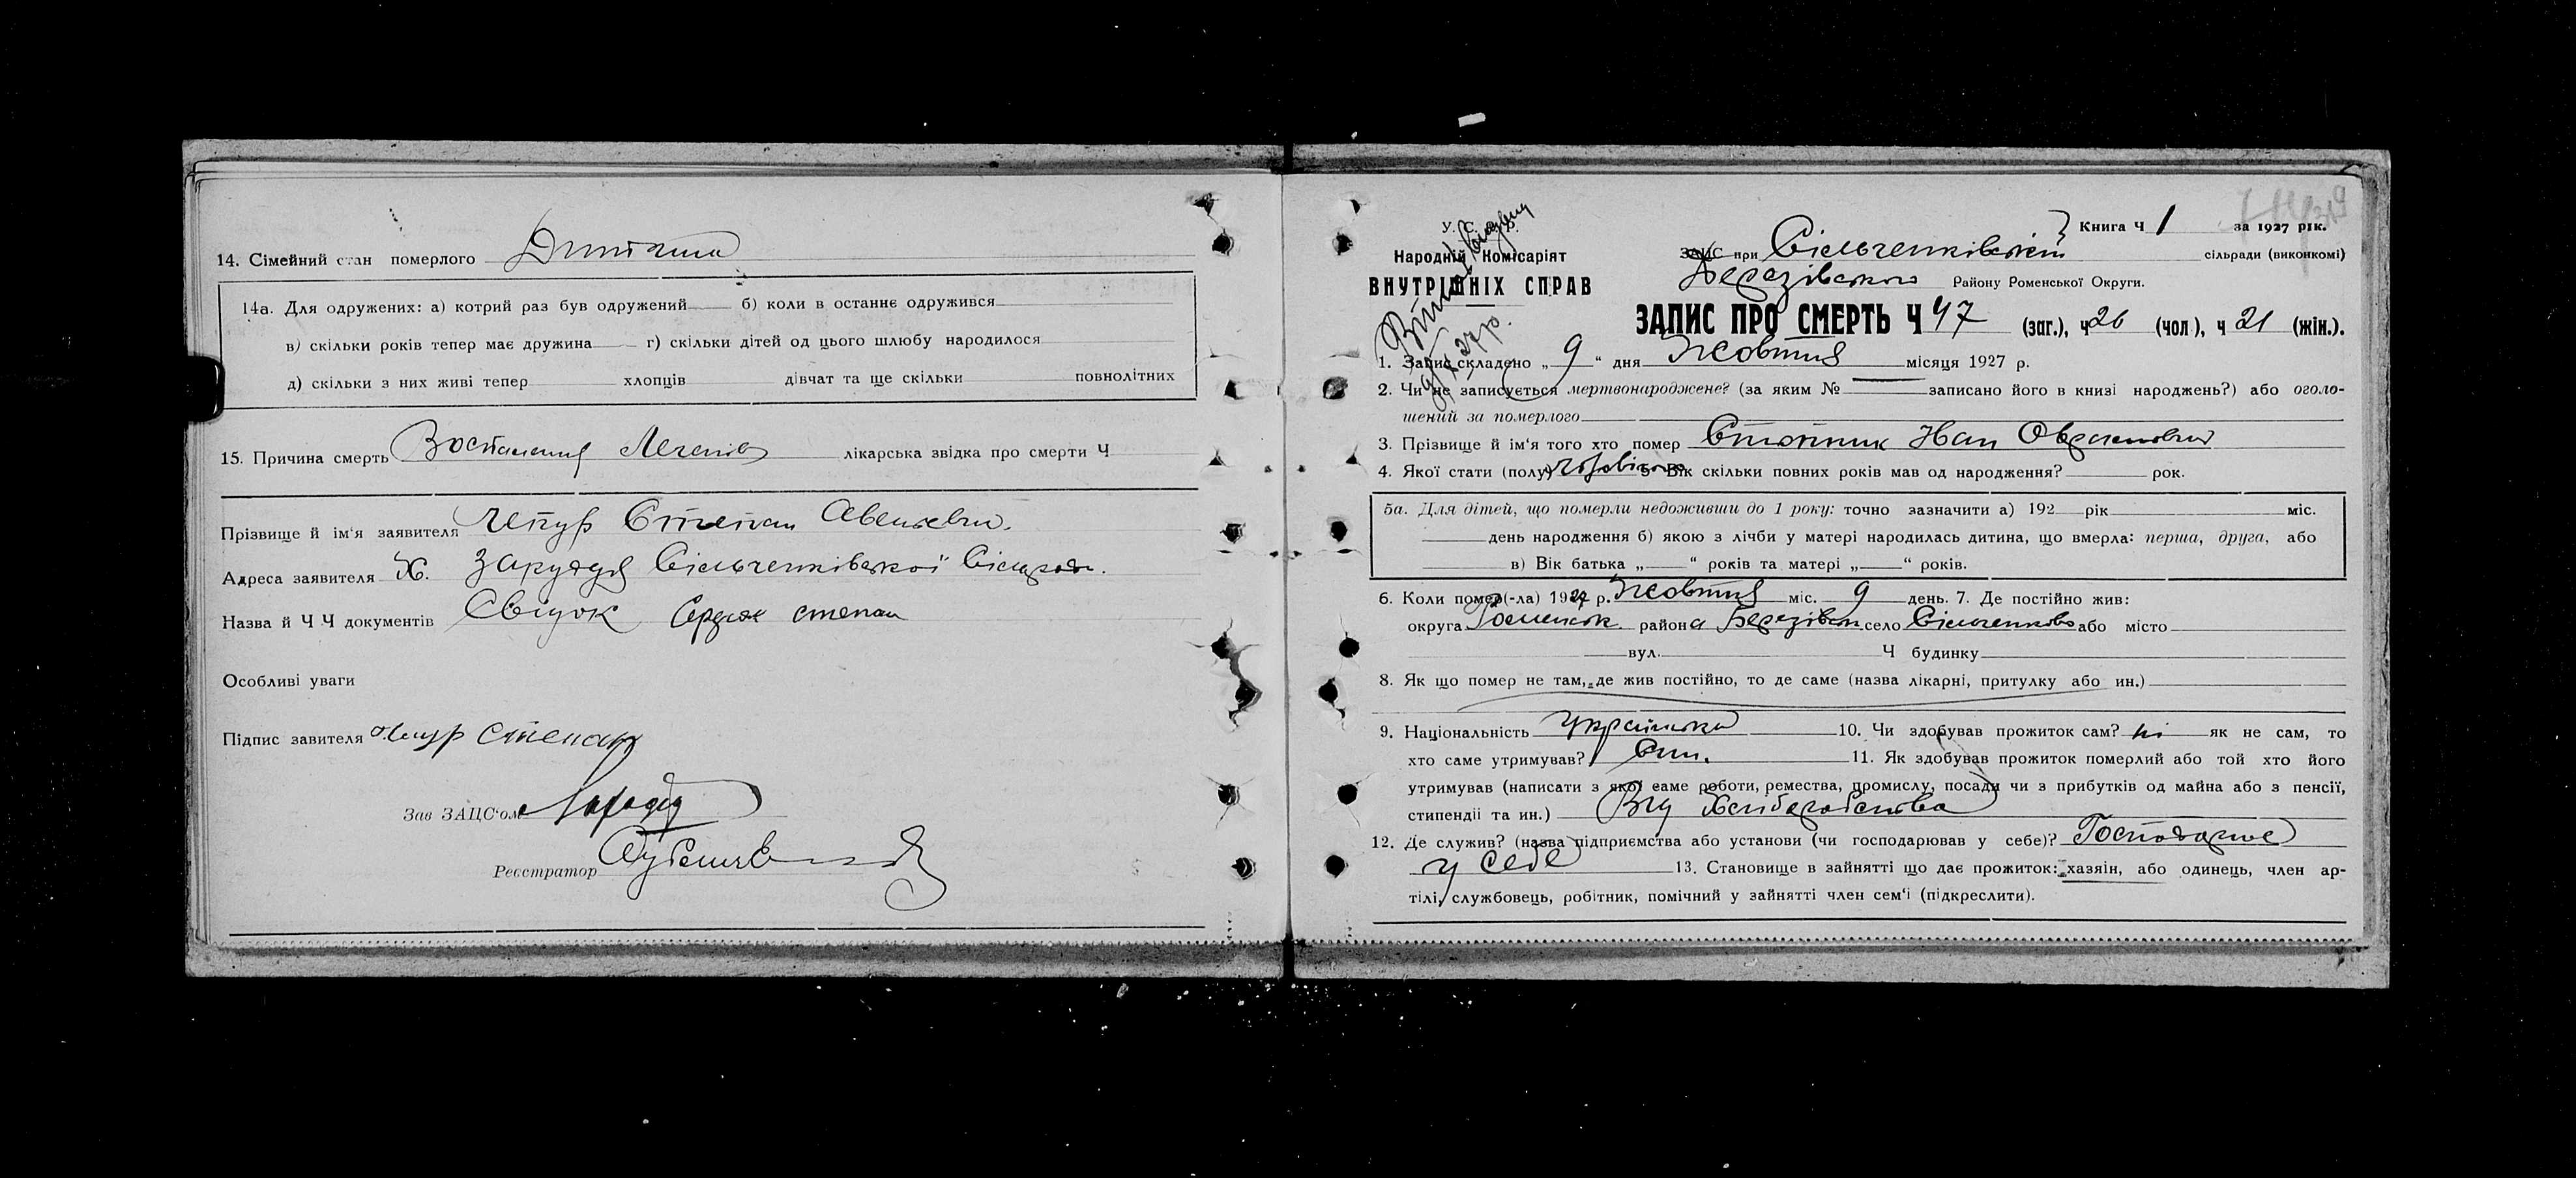 14. Сімейний стан померлого Дитина
14а. Для одружених: а) котрий раз був одружений б) коли в останнє одружився
в) скільки років тепер має дружина г) скільки дітей од цього шлюбу народилося
д) скільки з них живі тепер хлопців дівчат та ще скільки повнолітних
15. Причина смерть Воспаления Легенів лікарська звідка про смерти Ч
Прізвище й ім'я заявителя Чепур Степан
Адреса заявителя Х. Заруддя Сільченківської Сільради.
Назва й Ч Ч документів Свідок Сердюк степан
Особливі уваги
Підпис завителя Чепур Степан
Зав ЗАЦС'ом
Реєстратор
У. С. Р. Р.
Народній Комісаріят
ВНУТРІШНІХ СПРАВ
27 р.
Книга Ч 1 за 1927 рік.
ЗАЦС при Сільченківський сільради (виконкомі)
Березівського Району Роменської Округи.
ЗАПИС ПРО СМЕРТЬ Ч 47 (заг.), ч 26 (чол), ч 21 (жін.).
1. Запис складено „ 9 “ дня Жовтня місяця 1927 р.
2. Чи не записується мертвонароджене? (за яким № записано його в книзі народжень?) або оголо-
шений за померлого
3. Прізвище й ім'я того хто помер
4. Якої стати (полу) чоловічого 5. Вік скільки повних років мав од народження? рок.
5а. Для дітей, що померли недоживши до 1 року: точно зазначити а) 192 рік міс.
день народження б) якою з лічби у матері народилась дитина, що вмерла: перша, друга, або
в) Вік батька „ “ років та матері „ “ років.
6. Коли помер(-ла) 1927 р. Жовтня міс. 9 день. 7. Де постійно жив:
округа Роменськ района Березівськ село Сільченково або місто
вул. Ч будинку
8. Як що помер не там, де жив постійно, то де саме (назва лікарні, притулку або ин.)
9. Національність українська 10. Чи здобував прожиток сам? ні як не сам, то
хто саме утримував? 11. Як здобував прожиток померлий або той хто його
утримував (написати з якої саме роботи, ремества, промислу, посади чи з прибутків од майна або з пенсії,
стипендії та ин.) Від Хліборобства
12. Де служив? (назва підприємства або установи (чи господарював у себе)? Господарює
у себе 13. Становище в зайнятті що дає прожиток: хазяін, або одинець, член ар-
тілі, службовець, робітник, помічний у зайнятті член сем'ї (підкреслити).